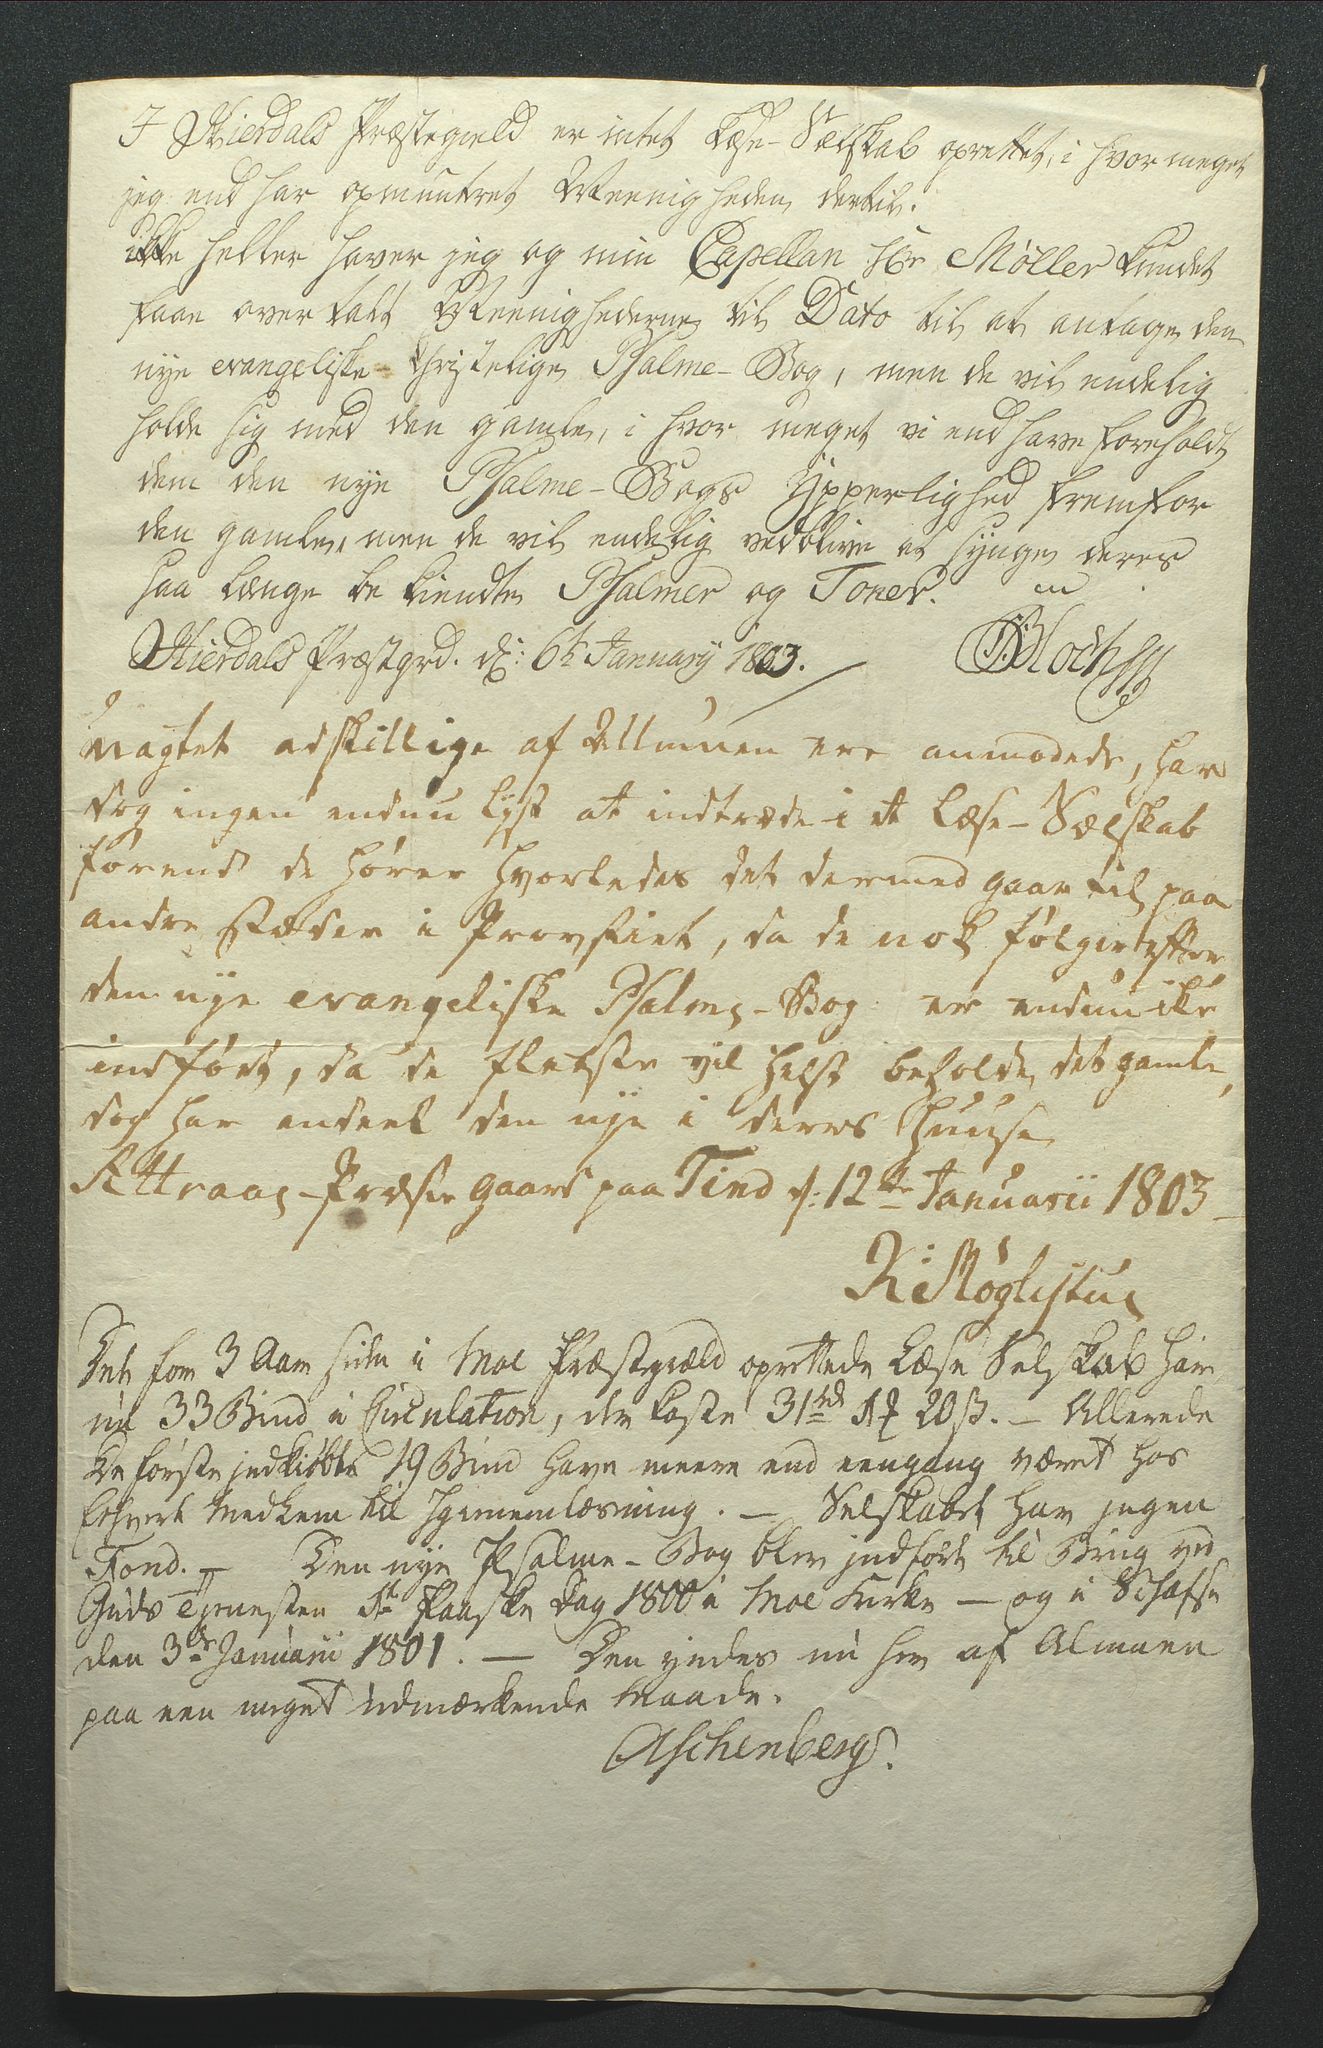 I Hierdals Præstegield er intet Læse-Selskab oprettet, i hvor meget
jeg end har opmuntret Meenigheden dertil.
ikke heller haver jeg og min Capellan Hr Møller kundet
faae overtalt Meenighederne til Dato til at antage den
nye evangeliske christelige Psalme-Bog, men de vil endelig
holde sig med den gamle, i hvor meget vi end have foreholdt
dem den nye Psalme-Bogs Ypperlighed fremfor
den gamle, men de vil endelig vedblive at synge deres
saa længe bekiendte Psalmer og Toner.
Hierdals Præstgrd. d: 6t Januarÿ 1803. Bloch
Uagtet adskillige af Allmuen ere anmodede, har
dog ingen endnu lyst at indtræde i et Læse-Selskab
førend de hører hvorledes det dermed gaar til paa
andre Stæder i Provstiet, da de nok følger efter
den nye evangeliske Psalme-Bog er endnu ikke
indført, da de fleeste vil helst beholde det gamle,
dog har endeel den nye i deres Huuse
Attraae Præste Gaard paa Tind d: 12te Januarii 1803
Det for 3 Aar siden i Moe Præstgield oprettede Læse Selskab har
nu 33 Bind i Circulation, der koste 31 rd 1 # 20 ß. – Allerede
De første indkiøbte 19 Bind have meere end eengang været hos
Ethvert Medlem til Igiennemlæsning. – Selskabet har ingen
Fond. – Den nye Psalme-Bog blev indført til Brug ved
Guds Tjenesten 1te Paaske Dag 1800 i Moe Kirke – og i Schafse
den 3de Januarii 1801. – Den yndes nu her af Almuen
paa een meget udmærkende Maade.
Aschenberg.